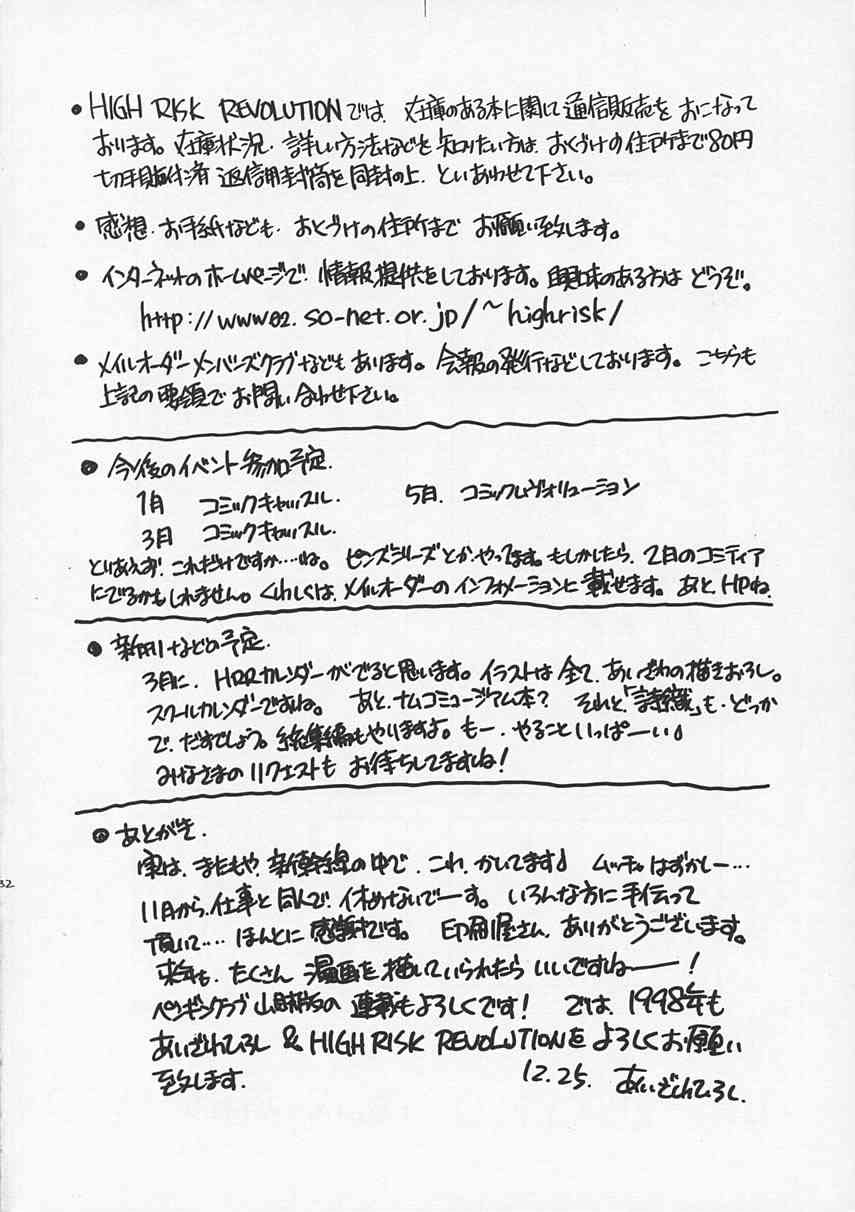 • HIGH RISK REVOLUTIONでは、在庫のある本に関して通信販売をおこなって
おります。在庫状況、詳しい方法などを知りたい方は、おくづけの住所まで80円
切手貼付済返信用封筒を同封の上、といあわせて下さい。
• 感想・お手紙なども、おくづけの住所までお願い致します。
• インターネットのホームページで、情報提供をしております。興味のある方はどうぞ。
http://www02.so-net.or.jp/~highrisk/
• メイルオーダーメンバーズクラブなどもあります。会報の発行などしております。こちらも
上記の要領でお問い合わせ下さい。
• 今後のイベント参加予定.
1月 コミックキャッスル. 5月. コミックレヴォリューション
3月 コミックキャッスル.
とりあえず、これだけですか…ね。ピンズシリーズとか、やってます。もしかしたら、2月のコミティア
にでるかもしれません。くわしくは、メイルオーダーのインフォメーションに載せます。あと、HPね.
• 新刊などの予定.
3月に、HRRカレンダーがでると思います。イラストは全て、あいざわの描きおろし。
スクールカレンダーですね。 あと、ナムコミュージアム本? それと、「詩織」も、どっか
で、だすでしょう。総集編もやりますよ。もー、やることいっぱーい♪
みなさまのリクエストもお待ちしてますね!
• あとがき.
実は、またもや、新幹線の中で、これ、かいてます♪ ムッチャはずかしー…
11月から、仕事と同人で、休めないでーす。いろんな方に手伝って
頂いて…ほんとに感謝です。印刷屋さん、ありがとうございます。
来年も、たくさん漫画を描いていられたらいいですねー!
ペンギンクラブ山賊版の連載もよろしくです! では、1998年も
あいざわひろし & HIGH RISK REVOLUTIONをよろしくお願い
致します.
12.25. あいざわひろし.
32